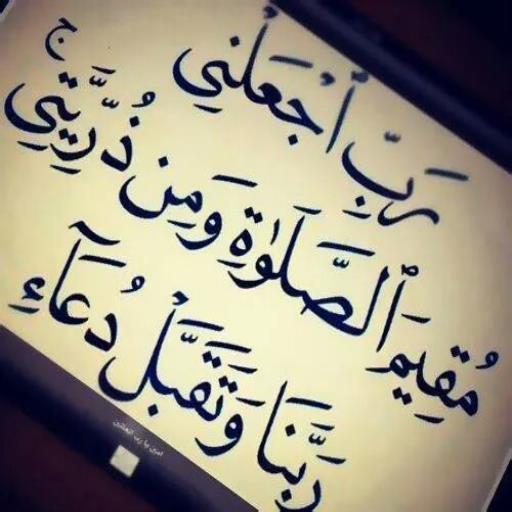 رَبِّ ٱجْعَلْنِي
مُقِيمَ ٱلصَّلَوٰةِ وَمِن ذُرِّيَّتِي ۚ
رَبَّنَا وَتَقَبَّلْ دُعَآءِ